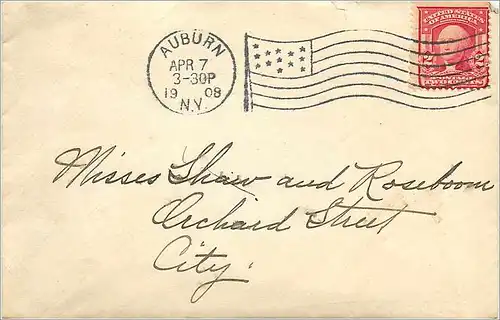 AUBURN
APR 7
3-30P
19 08
N.Y.
UNITED STATES
OF AMERICA
TWO CENTS
Misses Shaw and Roseboom
Orchard Street
City.